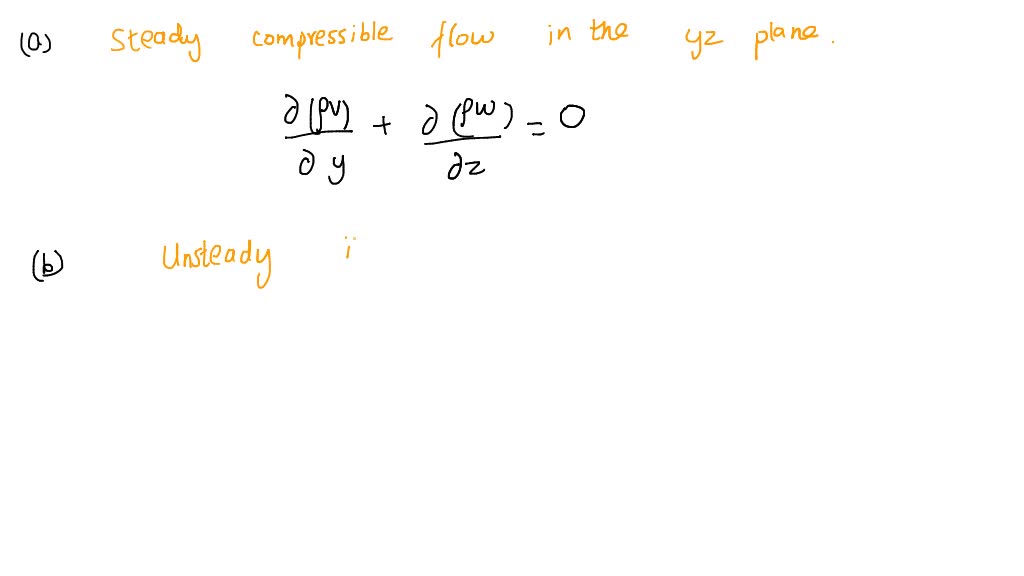 (a) Steady compressible flow in the yz plane.
∂(ρv)/∂y + ∂(ρw)/∂z = 0
(b) Unsteady i